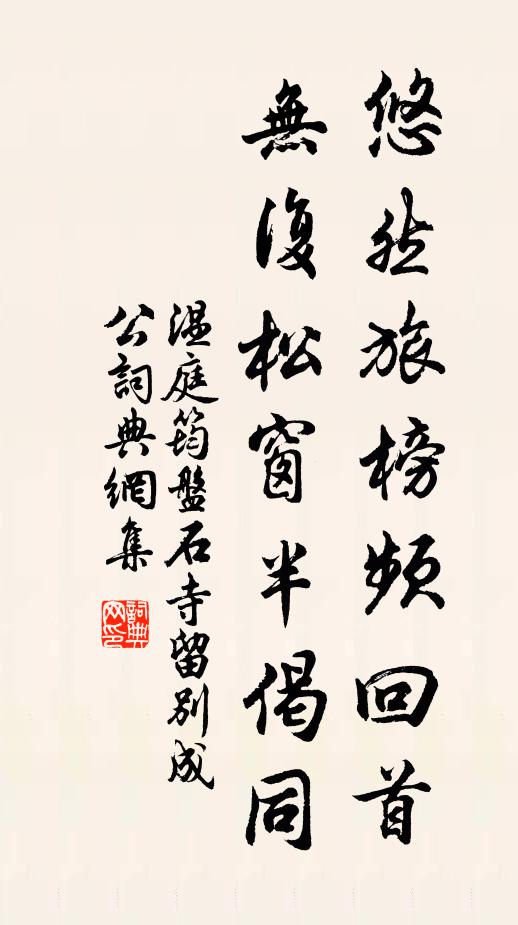 悠然旅榜頻回首
無復松窗半偈同
溫庭筠盤石寺留別成
公詞典網集
詞典
网印